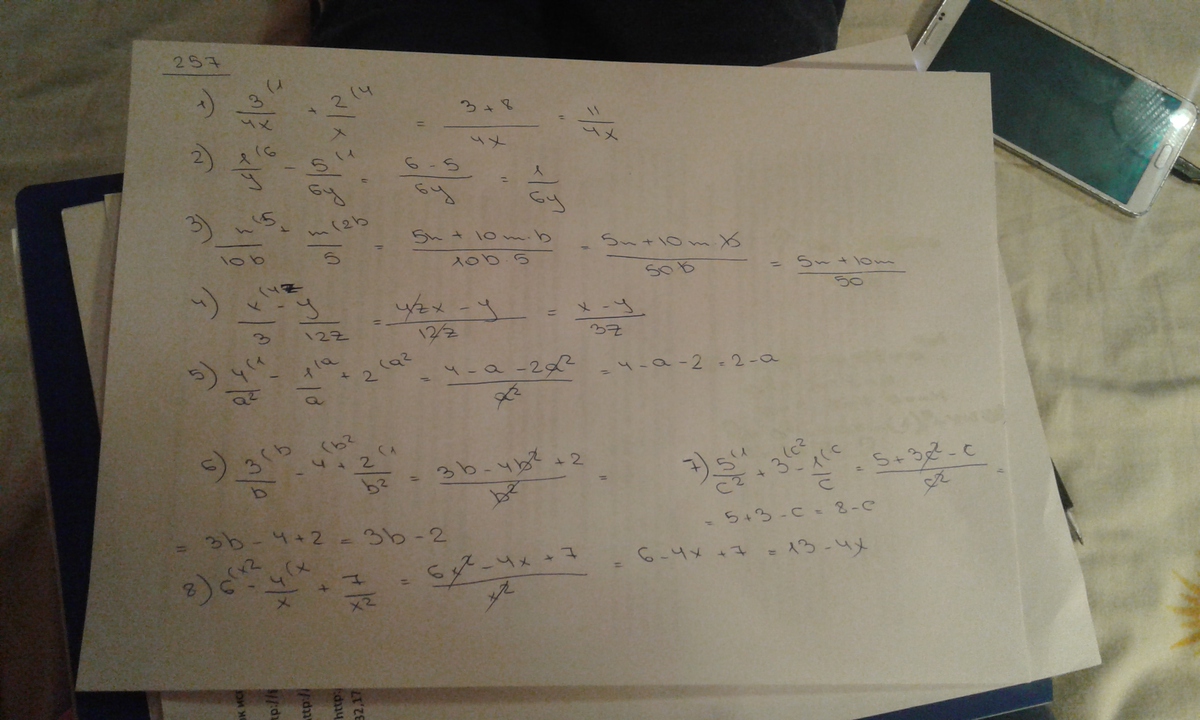 257
1) 3(1/4x + 2(4/x = 3+8/4x = 11/4x
2) 1(6/y - 5(1/6y = 6-5/6y = 1/6y
3) n(5/10b + m(2b/5 = 5n+10m·b/10b·5 = 5n+10mb/50b = 5n+10m/50
4) x(4z/3 - y/12z = 4zx-y/12z = x-y/3z
5) 4(1/a² - 1(a/a + 2(a² = 4-a-2a²/a² = 4-a-2 = 2-a
6) 3(b/b - 4(b² + 2(1/b² = 3b-4b²+2/b² =
= 3b-4+2 = 3b-2
7) 5(1/c² + 3(c² - 1(c/c = 5+3c²-c/c² =
= 5+3-c = 8-c
8) 6(x² - 4(x/x + 7/x² = 6x²-4x+7/x² = 6-4x+7 = 13-4x